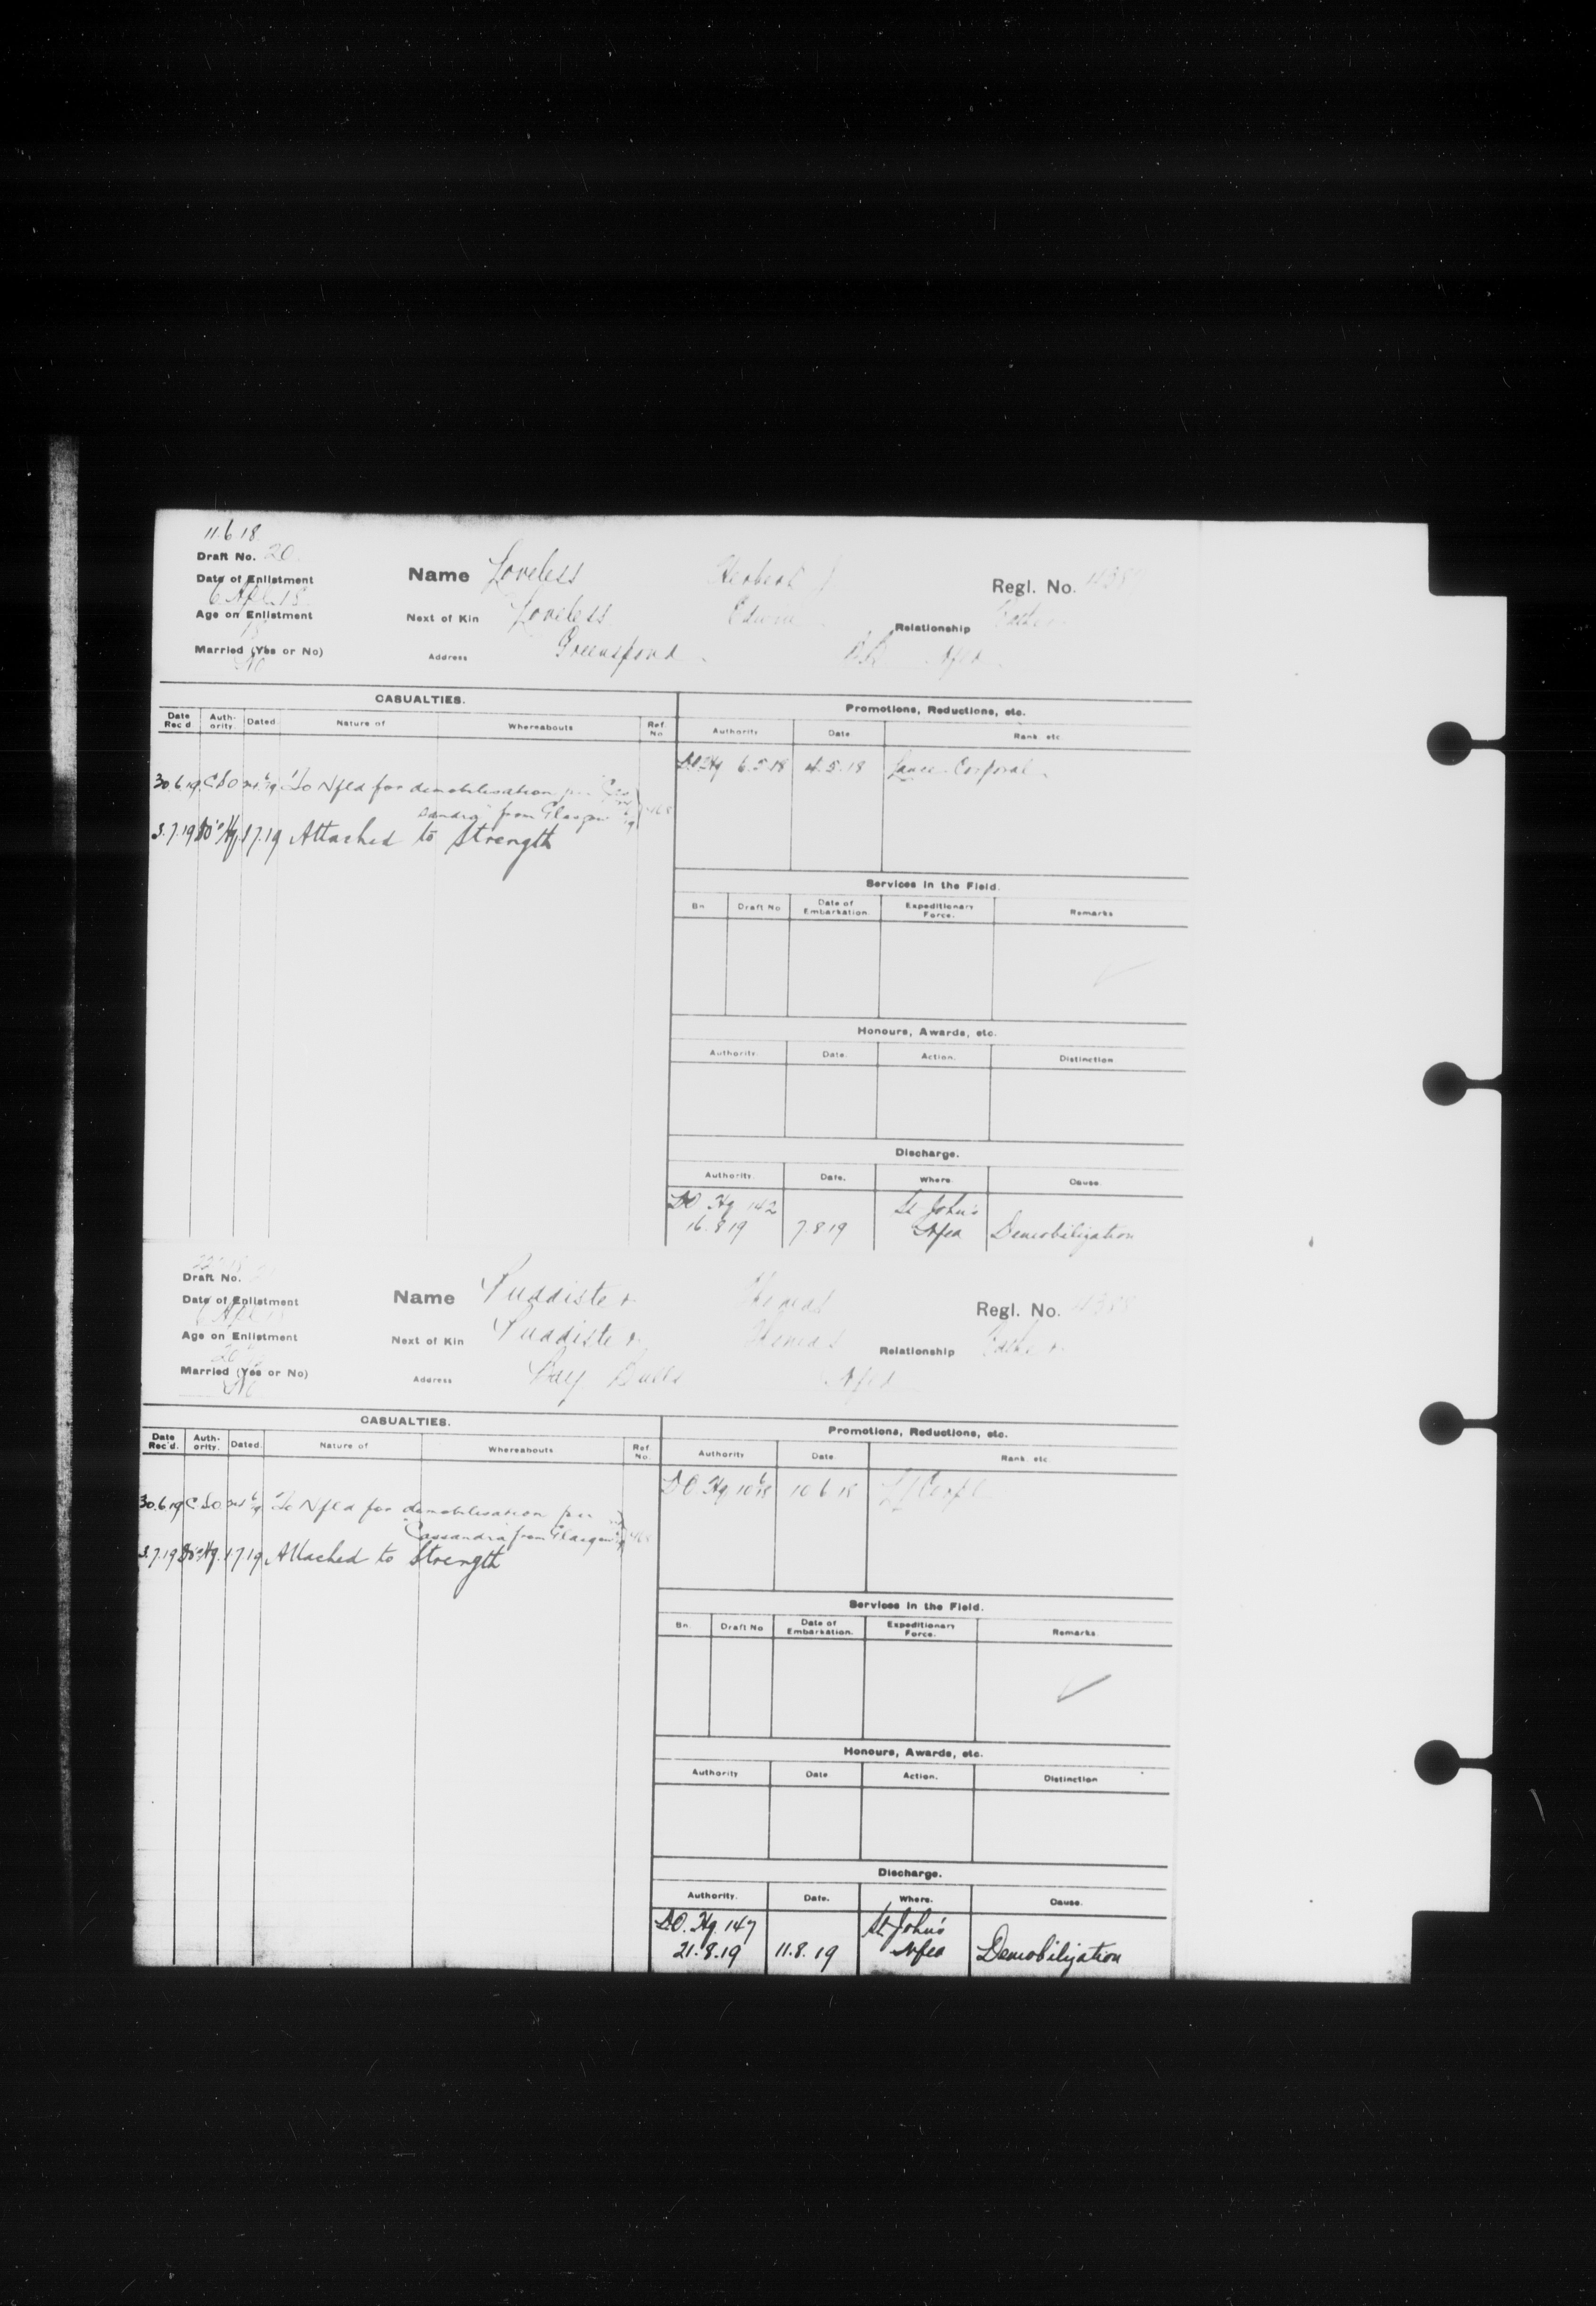 11.6.18
Draft No. 20
Date of Enlistment
6 Apl. 18
Age on Enlistment
18
Married (Yes or No)
No
Name Loveless Herbert J
Regl. No.
Next of Kin Loveless
Relationship Father
Address Greenspond B.B. Nfld
CASUALTIES.
Date Rec'd Auth-ority Dated Nature of Whereabouts Ref. No
30.6.19 CSO To Nfld for demobilisation per Cas
sandra from Glasgow
3.7.19 DO Hq 1.7.19 Attached to Strength
Promotions, Reductions, etc.
Authority Date Rank etc
DO Hq 6.5.18 4.5.18 Lance-Corporal
Services in the Field.
Bn Draft No Date of Embarkation. Expeditionary Force. Remarks
Honours, Awards, etc.
Authority. Date. Action. Distinction
Discharge.
Authority. Date. Where. Cause.
DO. Hq 142 St John's
16.8.19 7.8.19 Nfld Demobilization
Draft No.
Date of Enlistment
6 Apl 18
Age on Enlistment
Married (Yes or No)
No
Name Puddister Thomas
Regl. No.
Next of Kin Puddister Thomas
Relationship Father
Address Bay Bulls Nfld
CASUALTIES.
Date Rec'd. Auth-ority. Dated. Nature of Whereabouts Ref No.
30.6.19 CSO To Nfld for demobilisation per
Cassandra from Glasgow
3.7.19 DO Hq. 1.7.19 Attached to Strength
Promotions, Reductions, etc.
Authority Date. Rank. etc.
DO. Hq 10.6.18 10.6.18 L/Corpl
Services in the Field.
Bn. Draft No Date of Embarkation. Expeditionary Force. Remarks.
Honours, Awards, etc.
Authority Date Action. Distinction
Discharge.
Authority. Date. Where. Cause.
D.O. Hq. 147 St John's
21.8.19 11.8.19 Nfld Demobilization